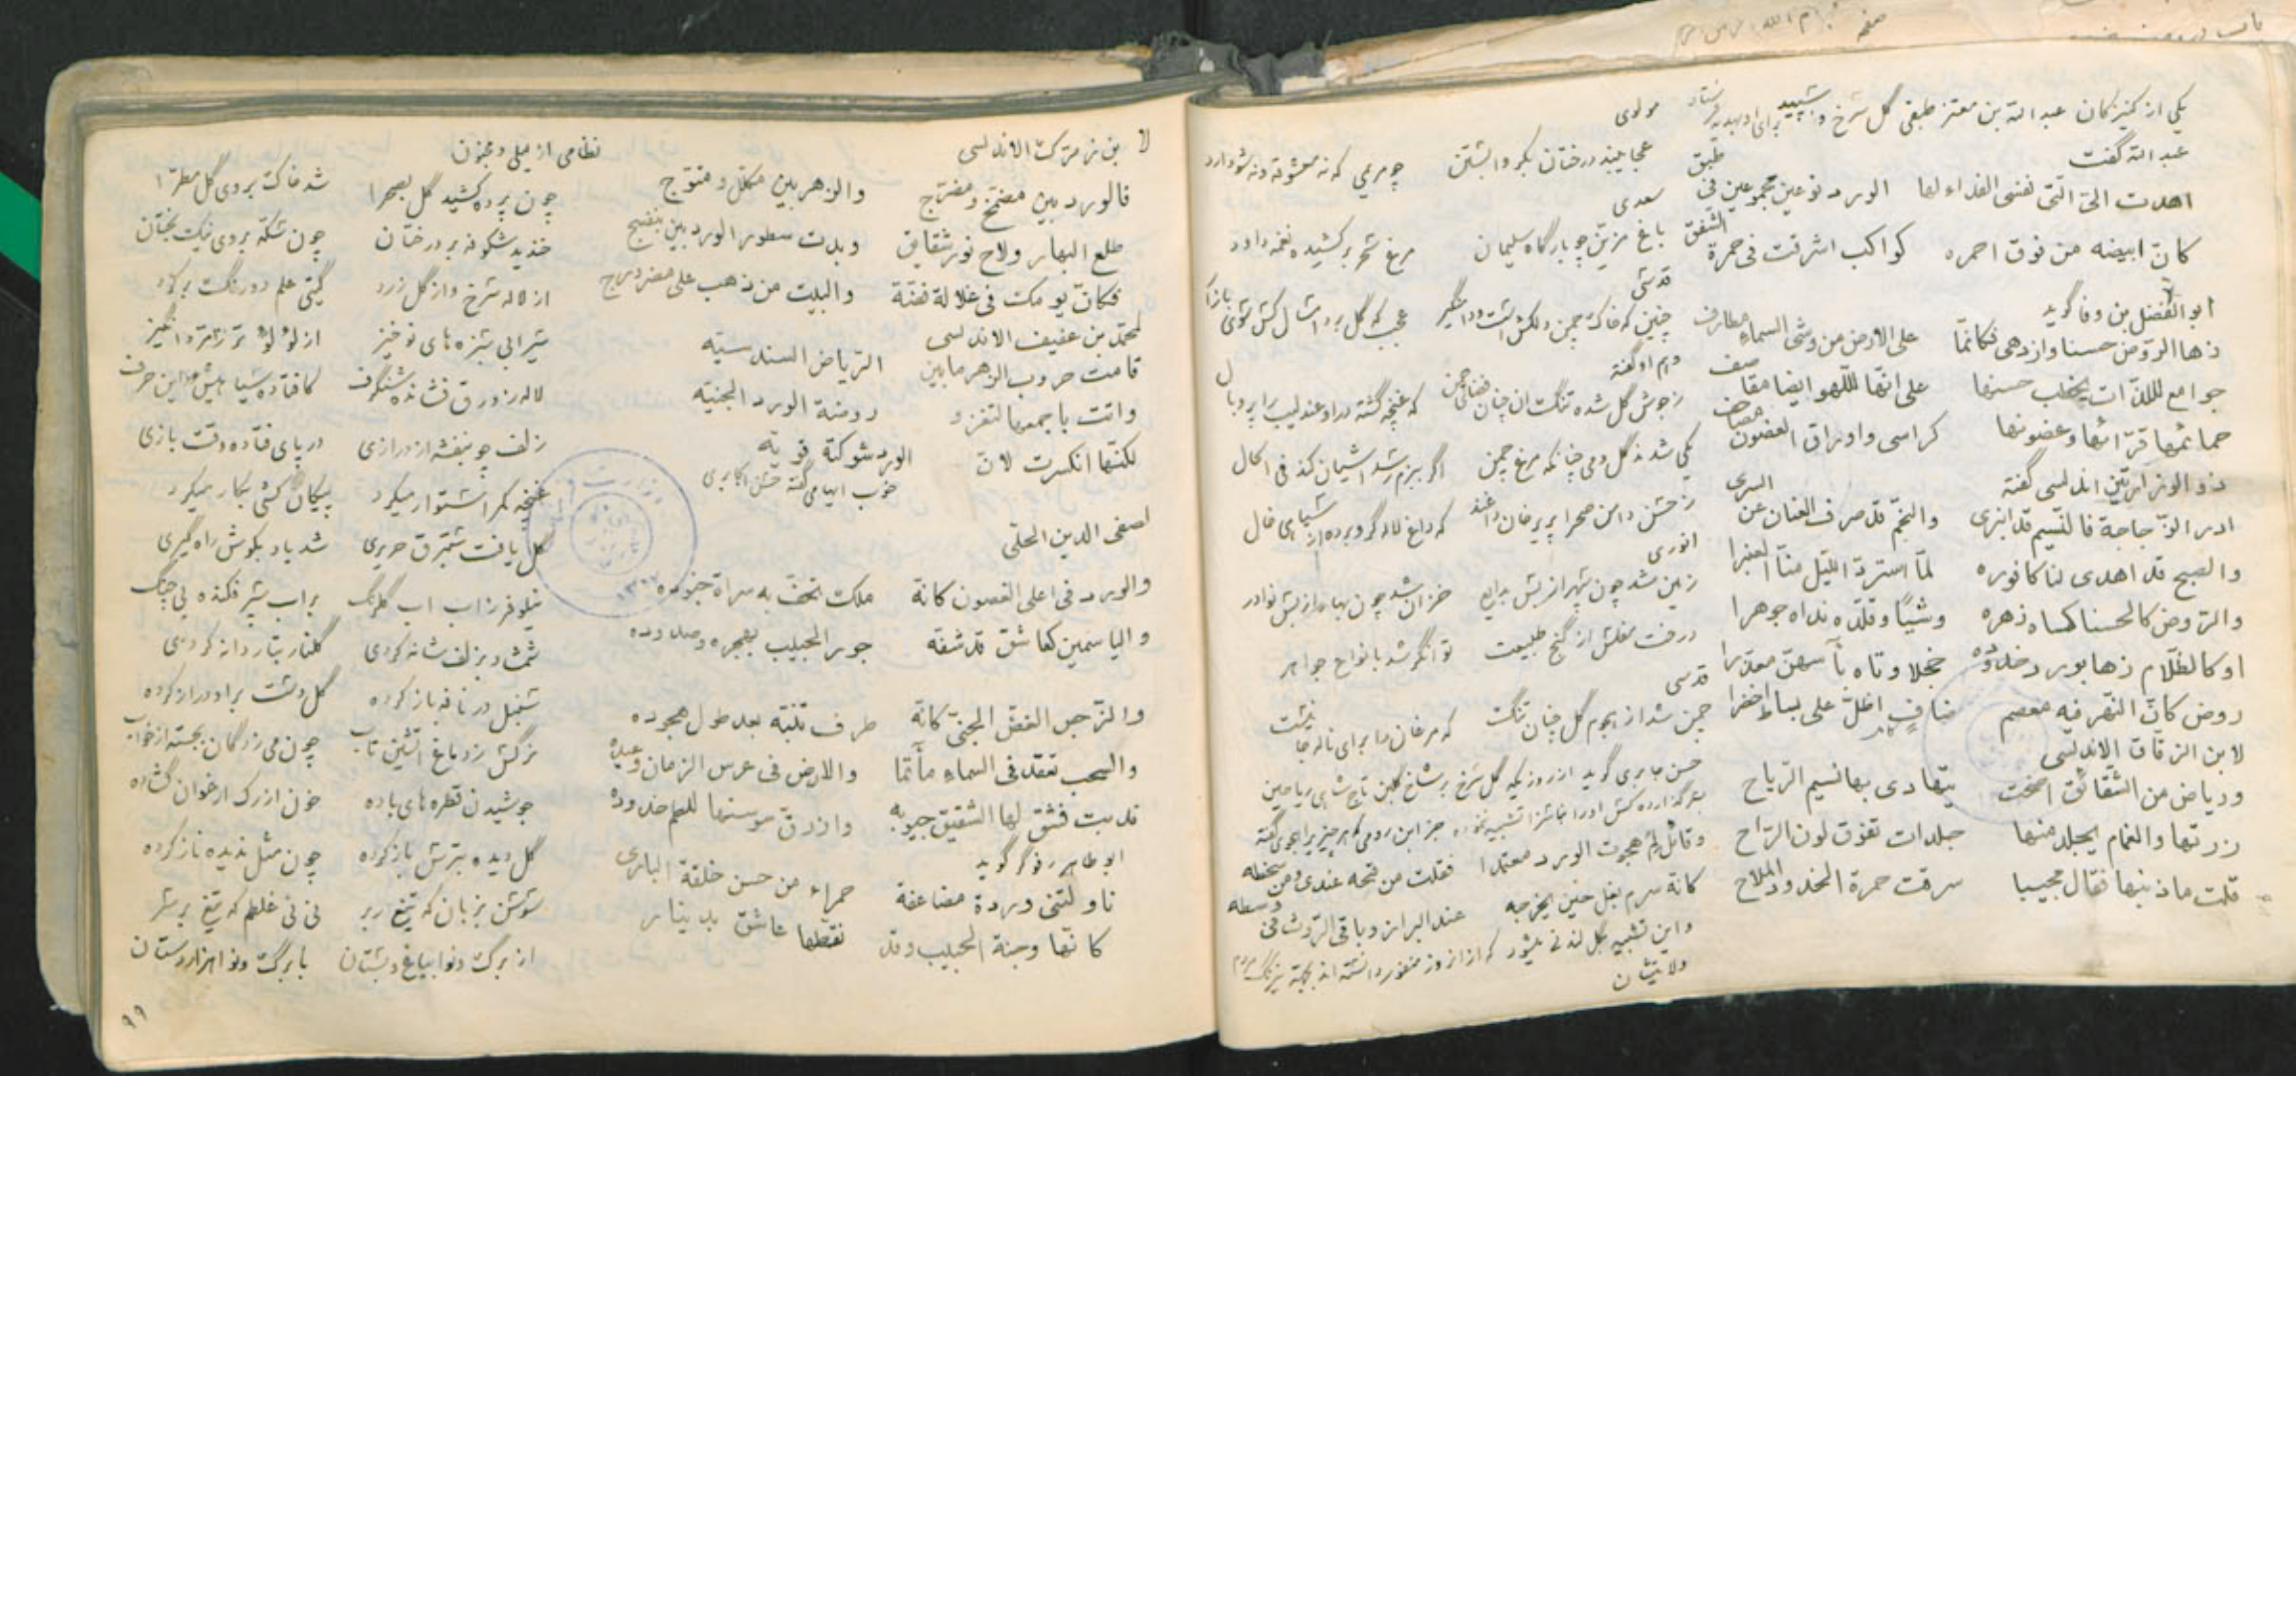 یکی از کنیزکان عبد الله بن معتز طبقی گل سرخ و سپید برای او هدیه فرستاد
عبد الله گفت
اهدت الیّ التی نفسی الفداء لها الورد نوعین مجموعین فی طبق
کانّ ابیضه من فوق احمره کواکب اشرقت فی حمرة الشفق
ابو الفضل بن وفا گوید
زها الروض حسنا وازدهی فکانّما علی الارض من وشی السماء مطارف
جوامع للذّات یخطب حسنها علی انّها للّهو ایضا مقاصف
حمائمها قرّائها وغصونها کراسی واوراق الغصون مصاحف
ذو الوزارتین اندلسی گفته
ادر الزّجاجة فالنسیم قد انبری والنجم قد صرف العنان عن السری
والصبح قد اهدی لنا کافوره لمّا استردّ اللیل منّا العنبرا
والرّوض کالحسنا کساه زهره وشیًا وقلّده نداه جوهرا
او کالغلام زها بورد خدوده خجلا وتاه بآسهنّ معذرا
روض کانّ النهر فیه معصم صافٍ اطلّ علی بساط اخضرا
لابن الزقاق الاندلسی
وریاض من الشقائق اضحت یتهادی بها نسیم الریاح
زرتها والغمام یجلد منها جلدات تفوق لون الراح
قلت ما ذنبها فقال مجیبا سرقت حمرة الخدود الملاح
مولوی
عجایب بند درختان بکر و آبستن چو مریمی که نه معشوقه و نه شو دارد
سعدی
باغ مزیّن چو بارگاه سلیمان مرغ سحر برکشیده نغمه داود
قدسی
چنین که خاک چمن دلکش است و دامنگیر عجب که گل برد
وهم او گفته
ز جوش گل شده تنگ آن چنان فضای چمن که غنچه گشته در او عندلیب را پر و بال
یکی شد ز گل و می چنانکه مرغ چمن اگر ببزم رسد آشیان کند فی الحال
که داغ لاله گرو برده از سیاهی خال
انوری
زمین شد چون سپهر از بس بدایع خزان شد چون بهار از بس نوادر
درخت مفلس از گنج طبیعت توانگر شد بانواع جواهر
قدسی
چمن شد از هجوم گل چنان تنگ که مرغان را برای ناله جا نیست
حسن جابری گوید از روزیکه گل سرخ بر شاخ گلبن تاج شاهی ریاحین
جز ابن رومی که هر چیز را هجوی گفته
وقائل لم هجوت الورد معتمدا فقلت من قبحه عندی ومن سخطه
کانه سرم بغل حین یخرجه عند البراز وباقی الروث فی وسطه
ولایتشان
لا بن زمرک الاندلسی
فالورد بین مضمّخ ومضرّج والزهر بین مکلّل ومتوّج
طلع البهار ولاح نور شقایق وبدت سطور الورد بین بنفسج
فکانّ یومک فی غلالة فضّة والنبت من ذهب علی فیروزج
لمحمّد بن عفیف الاندلسی
قامت حروب الزهر مابین الریاض السندسیّه
واتت باجمعها لتغزو روضة الورد الجنیّه
لکنّها انکسرت لانّ الورد شوکته قویّه
خوب ایهامی گفته حسن جابری
لصفی الدین الحلّی
والورد فی اعلی الغصون کانّه ملک تحفّ به سراة جنوده
والیاسمین کعاشق قد شفّه جور الحبیب بهجره وصدوده
والنّرجس الغضّ الجنیّ کانّه طرف تنبّه بعد طول هجوده
والسحب تعقد فی السماء مأتما والارض فی عرس الزمان وعیده
ندبت فشقّ لها الشقیق جیوبه وازرقّ سوسنها للطم خدوده
ابو طاهر رفوگر گوید
ناولتنی وردة مضاعفة حمراء من حسن خلقة الباری
کانّها وجنة الحبیب وقد نقّطها عاشق بدینار
نظامی از لیلی و مجنون
چون پرده کشید گل بصحرا شد خاک بروی گل مطرّا
خندید شکوفه بر درختان چون سکه بروی نیکبختان
از لاله سرخ و از گل زرد گیتی علم دو رنگ بر کرد
سیرابی سبزه های نوخیز از لؤلؤ تر زمرد انگیز
لاله ز ورق فشانده شنگرف کافتاده سیاهیش بر این حرف
زلف چو بنفشه از درازی در پای فتاده وقت بازی
غنچه کمر استوار میکرد پیکان کشی بکار میکرد
گل یافت ستبرق حریری شد باد بگوش راه گیری
نیلوفر ز آب آب گلرنگ بر آب سپر فکنده بی جنگ
شمشاد بزلف شانه کردی گلنار بنار دانه کردی
سنبل در نافه باز کرده گل دست بر او دراز کرده
نرگس ز دماغ آتشین تاب چون می زدگان بجسته از خواب
جوشیدن قطره های باده خون از رگ ارغوان گشاده
گل دیده بترش باز کرده چون مثل ندیده ناز کرده
سوسن بزبان که تیغ بر بر نی نی غلطم که تیغ بر سر
از برگ و نوا بباغ و بستان با برگ و نوا هزاردستان
۹۹